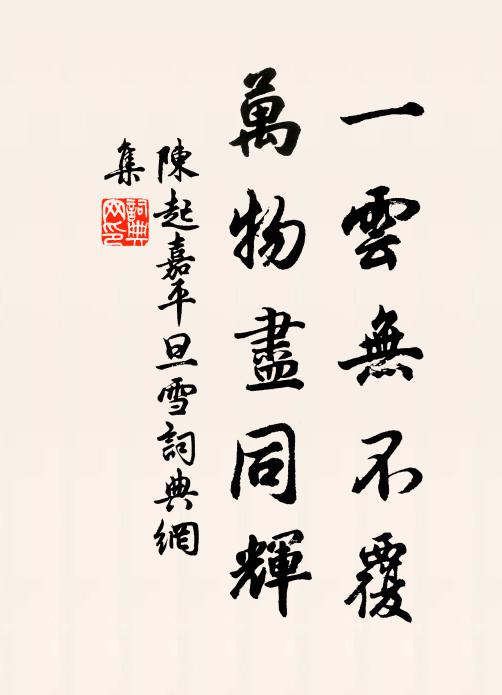 一雲無不覆
萬物盡同輝
陳起嘉平旦雪詞典網
集
詞典
网印